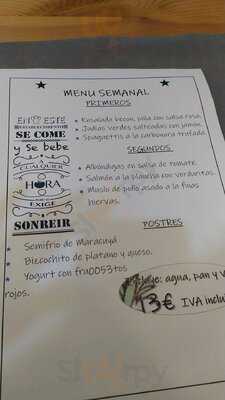 MENU SEMANAL
PRIMEROS
EN ESTE
ESTABLECIMIENTO
SE COME
Y Se bebe
CUALQUIER
HORA
EXIGE
SONREIR
Ensalada bacon, piña con salsa rosa.
Judías verdes salteadas con jamón.
Spaguettis a la carbonara trufada.
SEGUNDOS
Albóndigas en salsa de tomate.
Salmón a la plancha con verduritas.
Muslo de pollo asado a la finas
hiervas.
POSTRES
Semifrio de Maracuyá
Bizcochito de platano y queso.
Yogurt con fru0053tos
rojos.
agua, pan y v
13€ IVA inclu